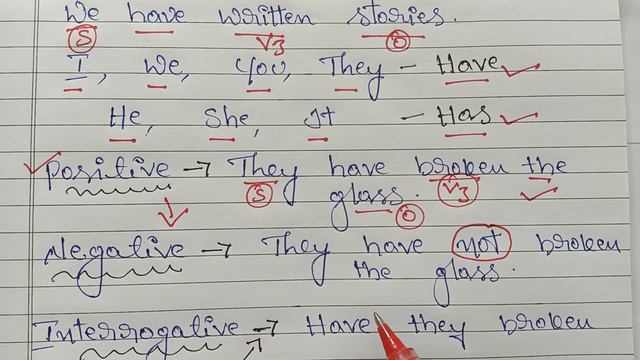 We have written stories.
S V3 O
I, We, you, They - Have
He, She, It - Has
Positive → They have broken the
S V3
glass.
O
Negative → They have not broken
the glass.
Interrogative → Have they broken